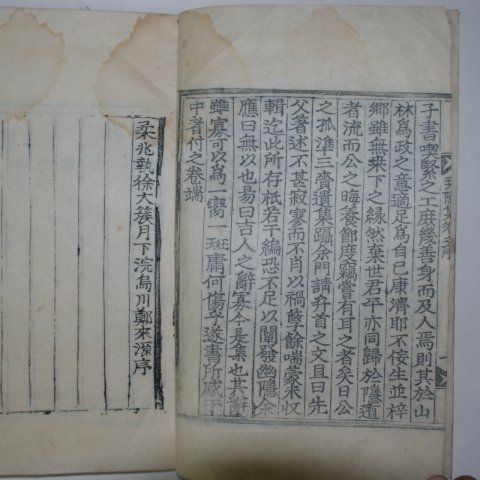 子書喫緊之工庶幾善身而及人焉則其於山
林爲政之意適足爲自己康濟耶不佞生並梓
鄕雖無乘下之緣然棄世君平亦同歸於隱遁
者流而公之晦養節度竊嘗有耳之者矣日公
之孤準三齎遺集躡余門請弁首之文且曰先
父著述不甚寂寥而不肖以禍孼餘喘蒙未收
輯迄此所存秖若干編恐不足以闡發幽隱余
應曰無以也易曰吉人之辭寡今是集也其辭
雖寡可以爲一臠一斑庸何傷乎遂書所感于
中者付之卷端
柔兆執徐大簇月下浣烏川鄭來源序